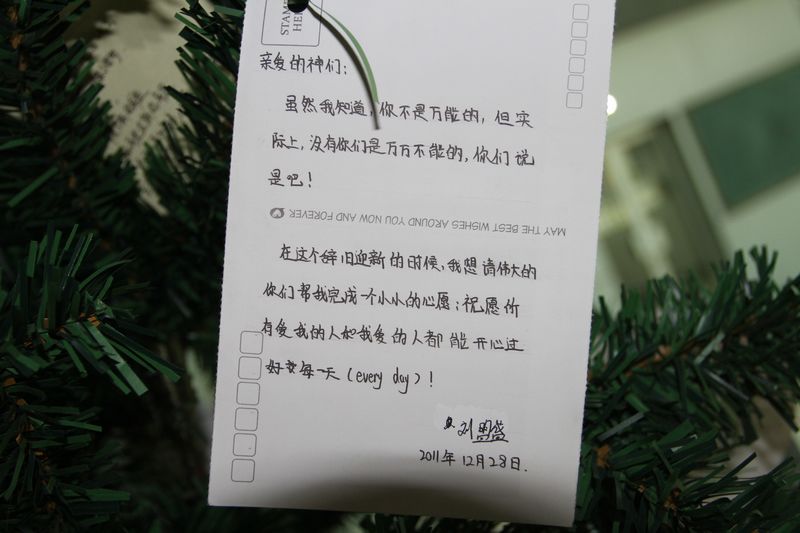 STAMP
HERE
亲爱的神们：
虽然我知道，你不是万能的，但实
际上，没有你们是万万不能的，你们说
是吧！
MAY THE BEST WISHES AROUND YOU NOW AND FOREVER
在这个辞旧迎新的时候，我想请伟大的
你们帮我完成一个小小的心愿；祝愿所
有爱我的人和我爱的人都能开心过
好每一天（every day）！
刘盟盛
2011年12月28日.